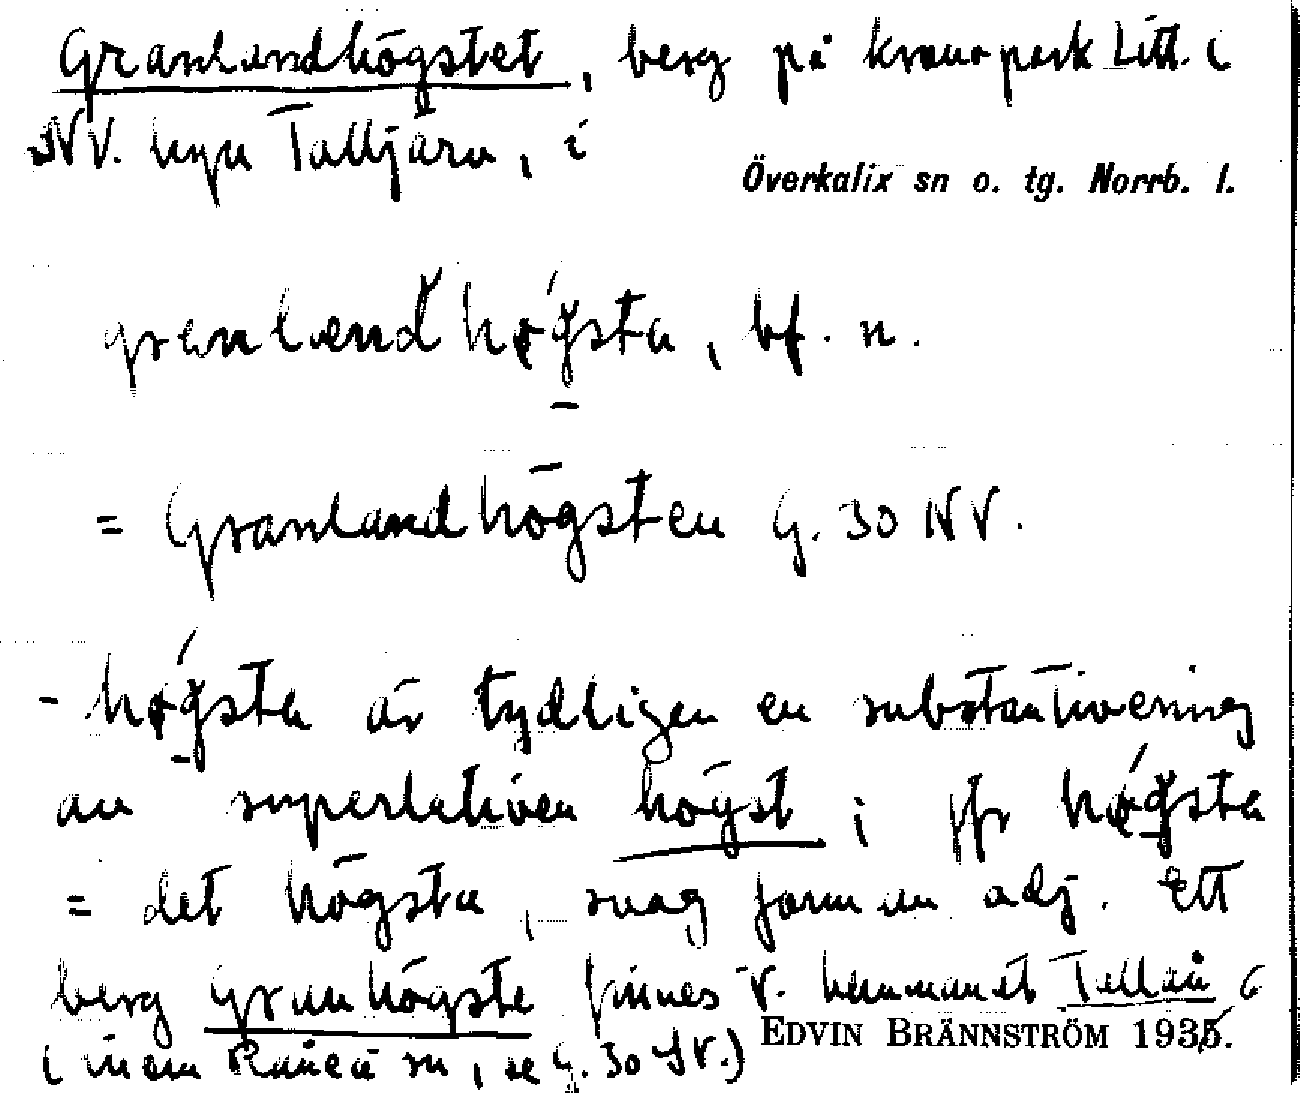 Granlandhögstet, berg på kronopark Litt. i
NV. hyn Talltjärn, i
Överkalix sn o. tg. Norrb. l.
granlænd hǿgsta, bf. n.
= Granlandhögsten G. 30 NV.
- hǿgsta är tydligen en substantivering
av superlativen högst; jfr hǿgsta
= det högsta, svag form av adj. Ett
berg Granhögste finnes V. hemmanet Tellån
(inom Råneå sn, se G. 30 SV.)
EDVIN BRÄNNSTRÖM 1936.